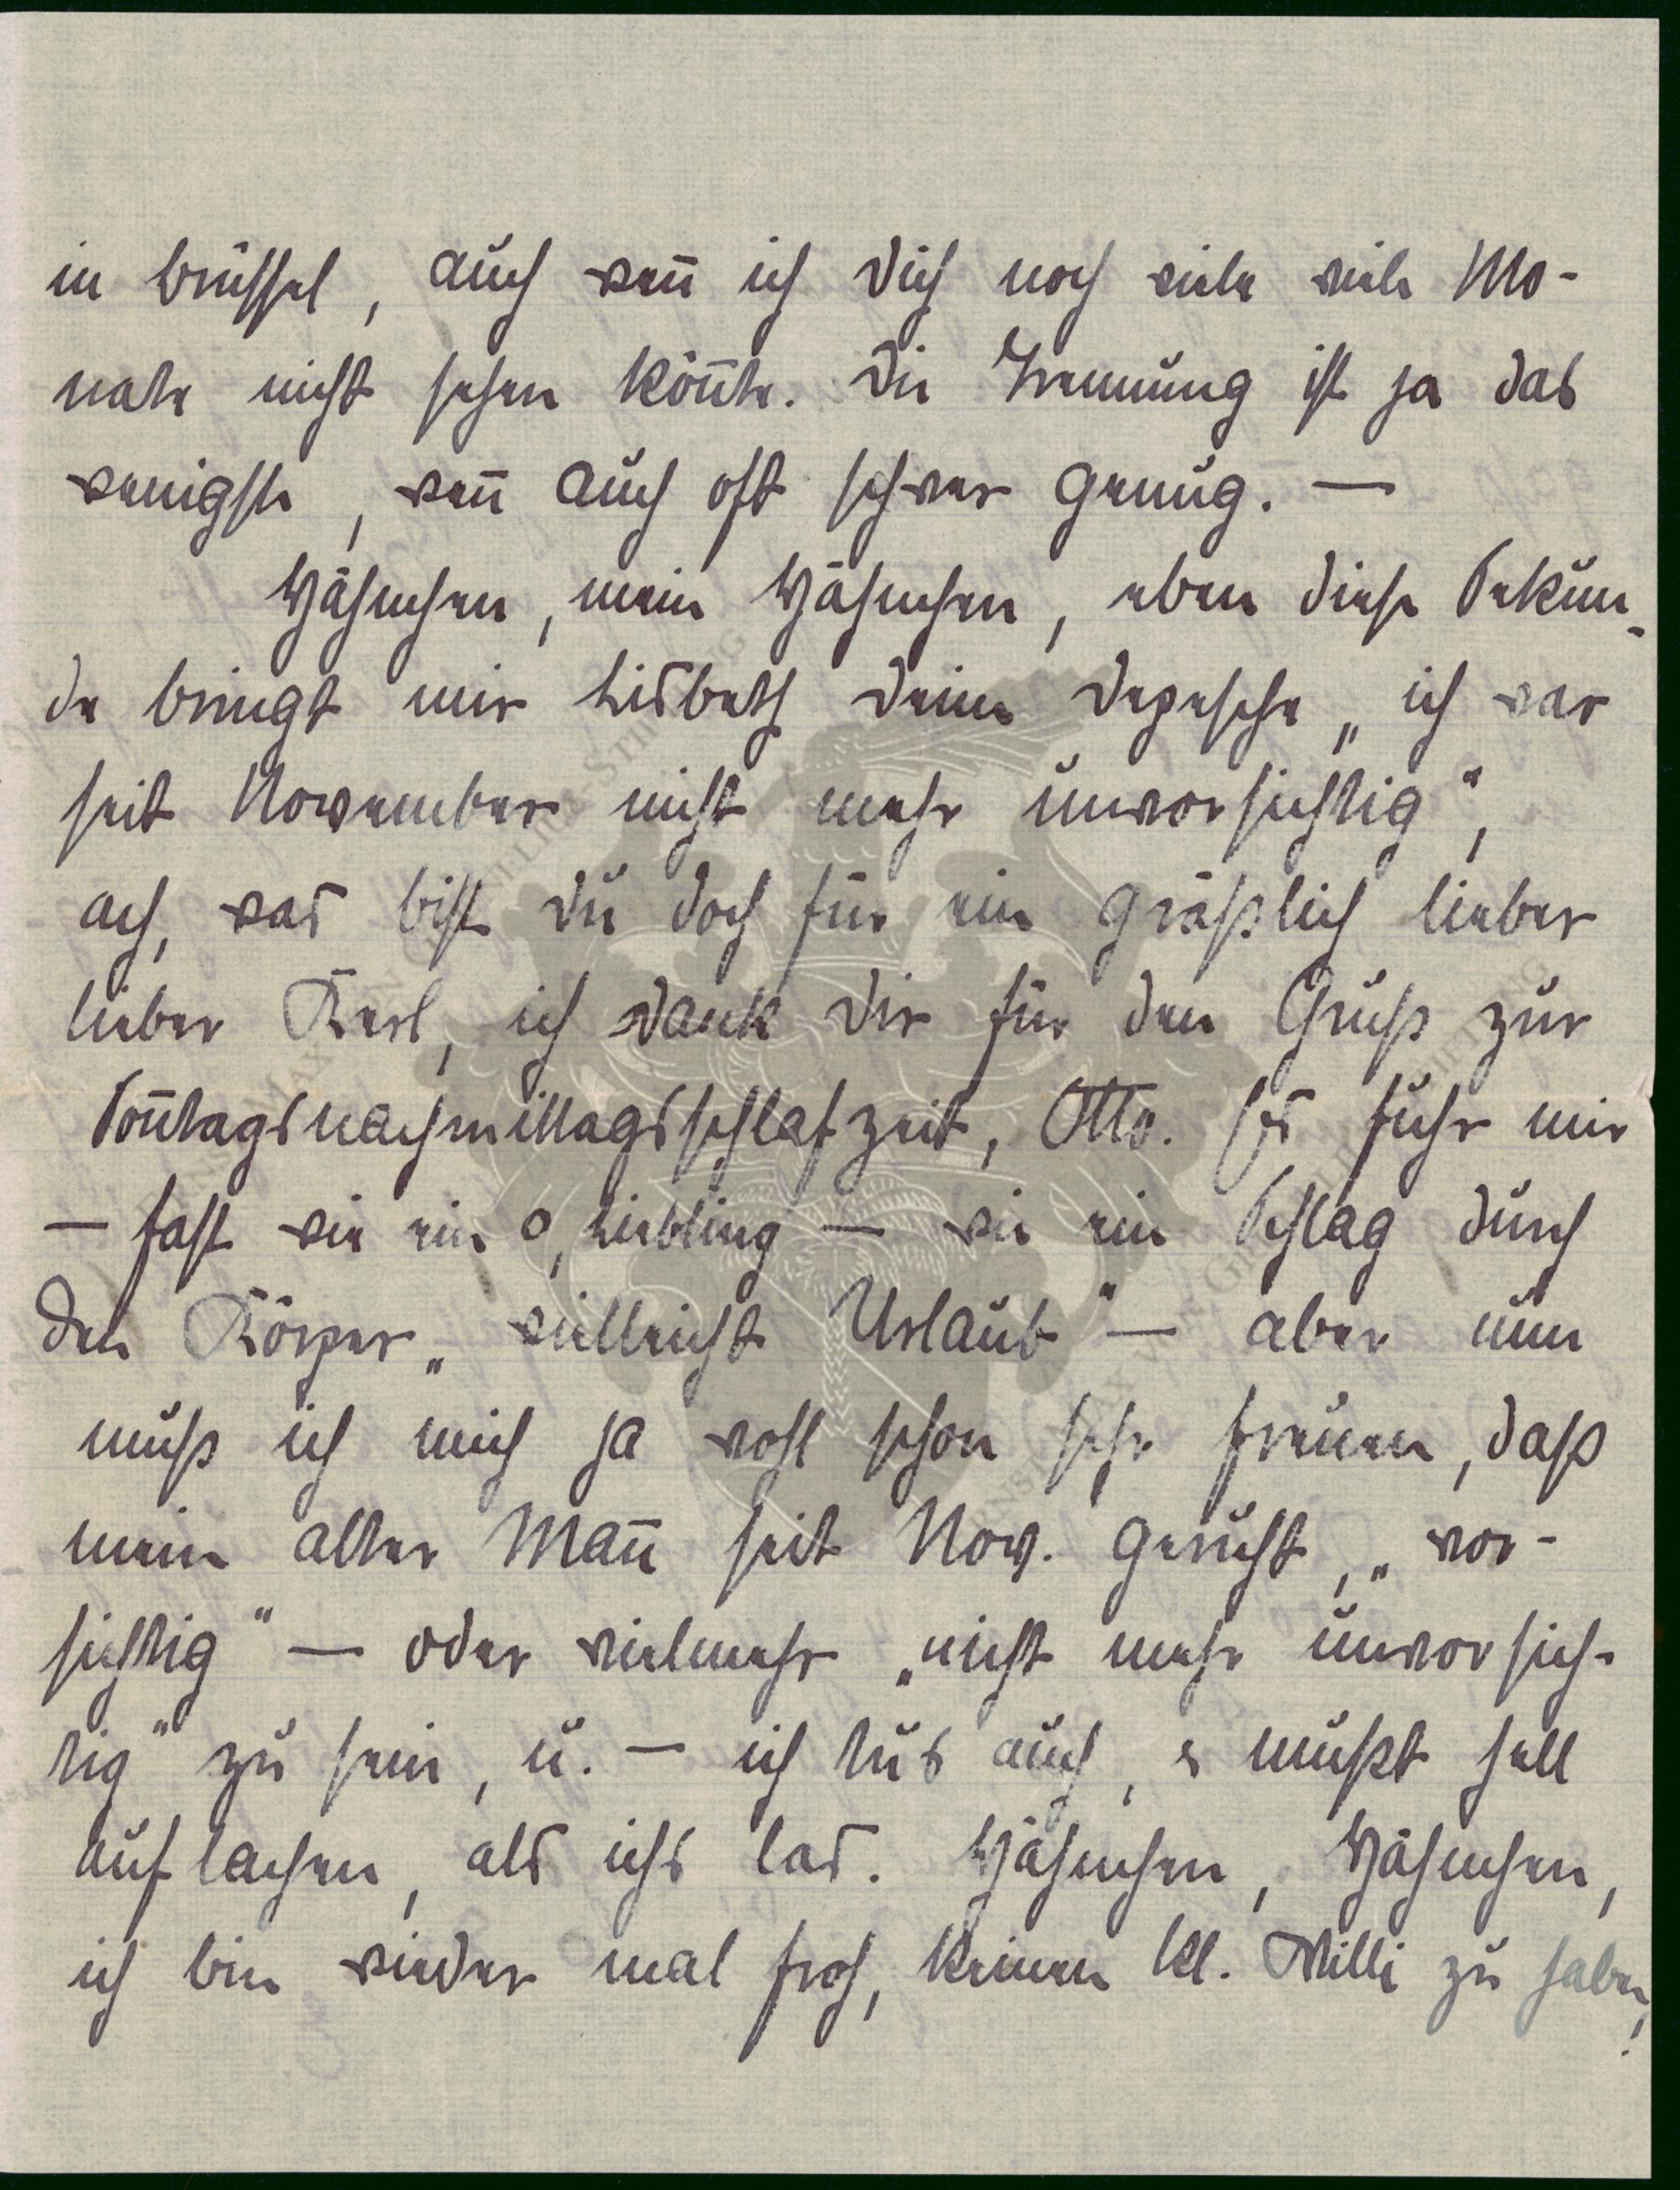 in Brüssel, auch weñ ich Dich noch viele viele Mo-
nate nicht sehen köñte. Die Trennung ist ja das
wenigste, weñ auch oft schwer genug. —
Häschen, mein Häschen, eben diese Sekun-
de bringt mir Lisbeth Deine Depesche „ich war
seit November nicht mehr unvorsichtig“,
ach, was bist Du doch für ein gräßlich lieber
lieber Kerl, ich dank Dir für den Gruß zur
Soñtagsnachmittagsschlafzeit, Otto. Es fuhr mir
— fast wie ein O, Liebling — wie ein Schlag durch
den Körper „vielleicht Urlaub“ — aber nun
muß ich mich ja wohl schon sehr freuen, daß
mein alter Mañ seit Nov. geruht, „vor-
sichtig“ — oder vielmehr „nicht mehr unvorsich-
tig“ zu sein, u. — ich tus auch, mußt hell
auflachen, als ichs las. Häschen, Häschen,
ich bin wieder mal froh, keinen kl. Willi zu haben,